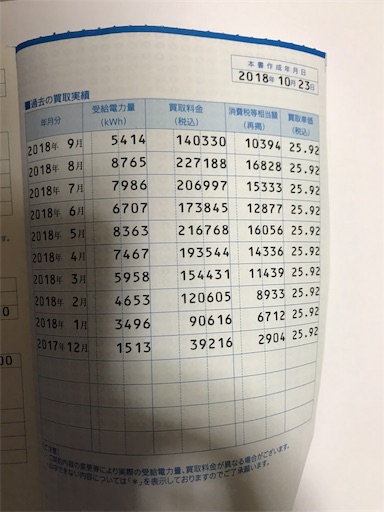 本書作成年月日
2018年 10月 23日
■過去の買取実績
年月分 受給電力量 (kWh) 買取料金 (税込) 消費税等相当額 (再掲) 買取単価 (税込)
2018年 9月 5414 140330 10394 25.92
2018年 8月 8765 227188 16828 25.92
2018年 7月 7986 206997 15333 25.92
2018年 6月 6707 173845 12877 25.92
2018年 5月 8363 216768 16056 25.92
2018年 4月 7467 193544 14336 25.92
2018年 3月 5958 154431 11439 25.92
2018年 2月 4653 120605 8933 25.92
2018年 1月 3496 90616 6712 25.92
2017年12月 1513 39216 2904 25.92
す。
0
00
ご契約内容の変更等により実際の受給電力量、買取料金が異なる場合がございます。
できない内容については「*」を表示しておりますのでご了承願います。